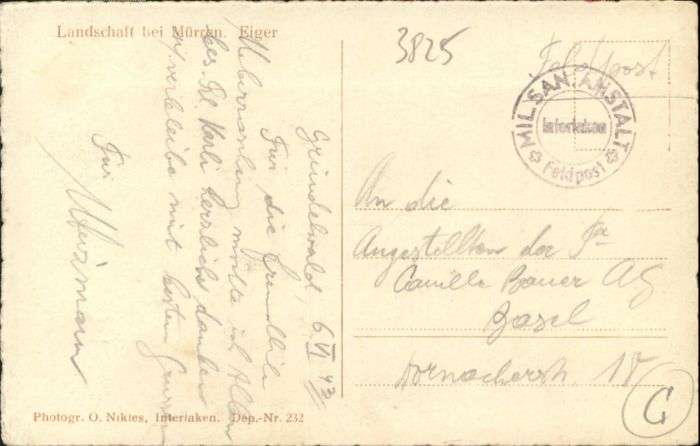 Landschaft bei Mürren. Eiger
3825
Feldpost
MIL. SAN. ANSTALT
Interlaken
Feldpost
Grindelwald, 6. VI 43
Für die freundliche
möchte ich Allen
bes. Frl. Karli herzlich danken
u. verbleibe mit besten Grüssen
Für
An die
Angestellten der Fa
Camille Bauer AG
Basel
Dornacherstr. 18
C
Photogr. O. Nikles, Interlaken. Dep.-Nr. 232